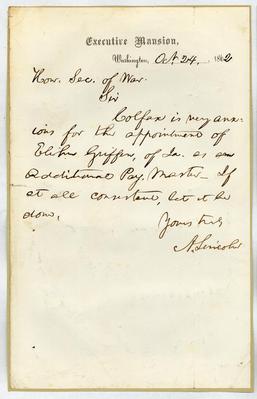 Executive Mansion,
Washington, Oct. 24, 1862
Hon. Sec. of War.
Sir
Colfax is very anx-
ious for the appointment of
Elihu Griffin, of Ia. as an
Additional Pay-Master— If
at all consistent, let it be
done.
Yours truly
A. Lincoln